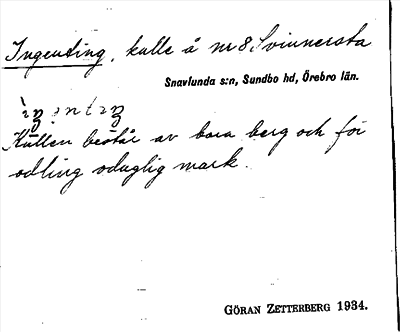 Ingenting, kulle å nr 8 Svinnersta
Snavlunda s:n, Sundbo hd, Örebro län.
Kullen består av bara berg och för
odling oduglig mark.
GÖRAN ZETTERBERG 1934.